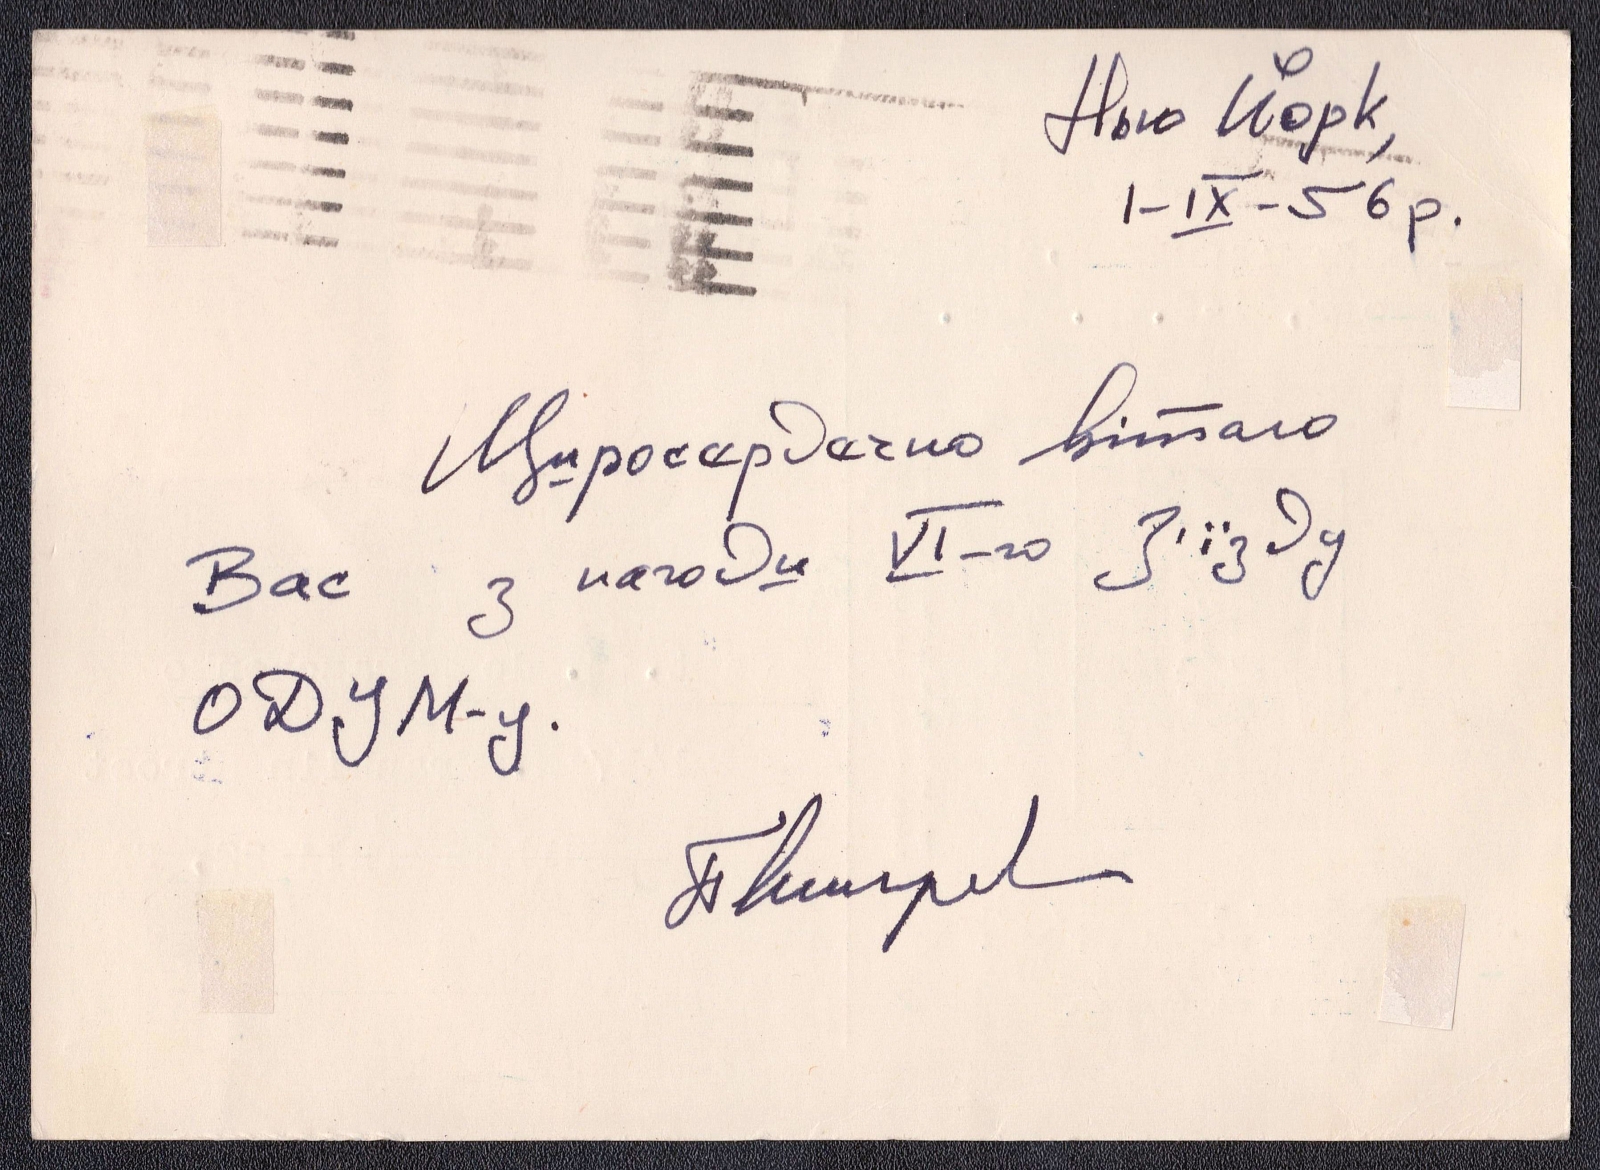 Нью Йорк,
1-IX-56 р.
Щиросердечно вітаю
Вас з нагоди VI-го З'їзду
ОДУМ-у.